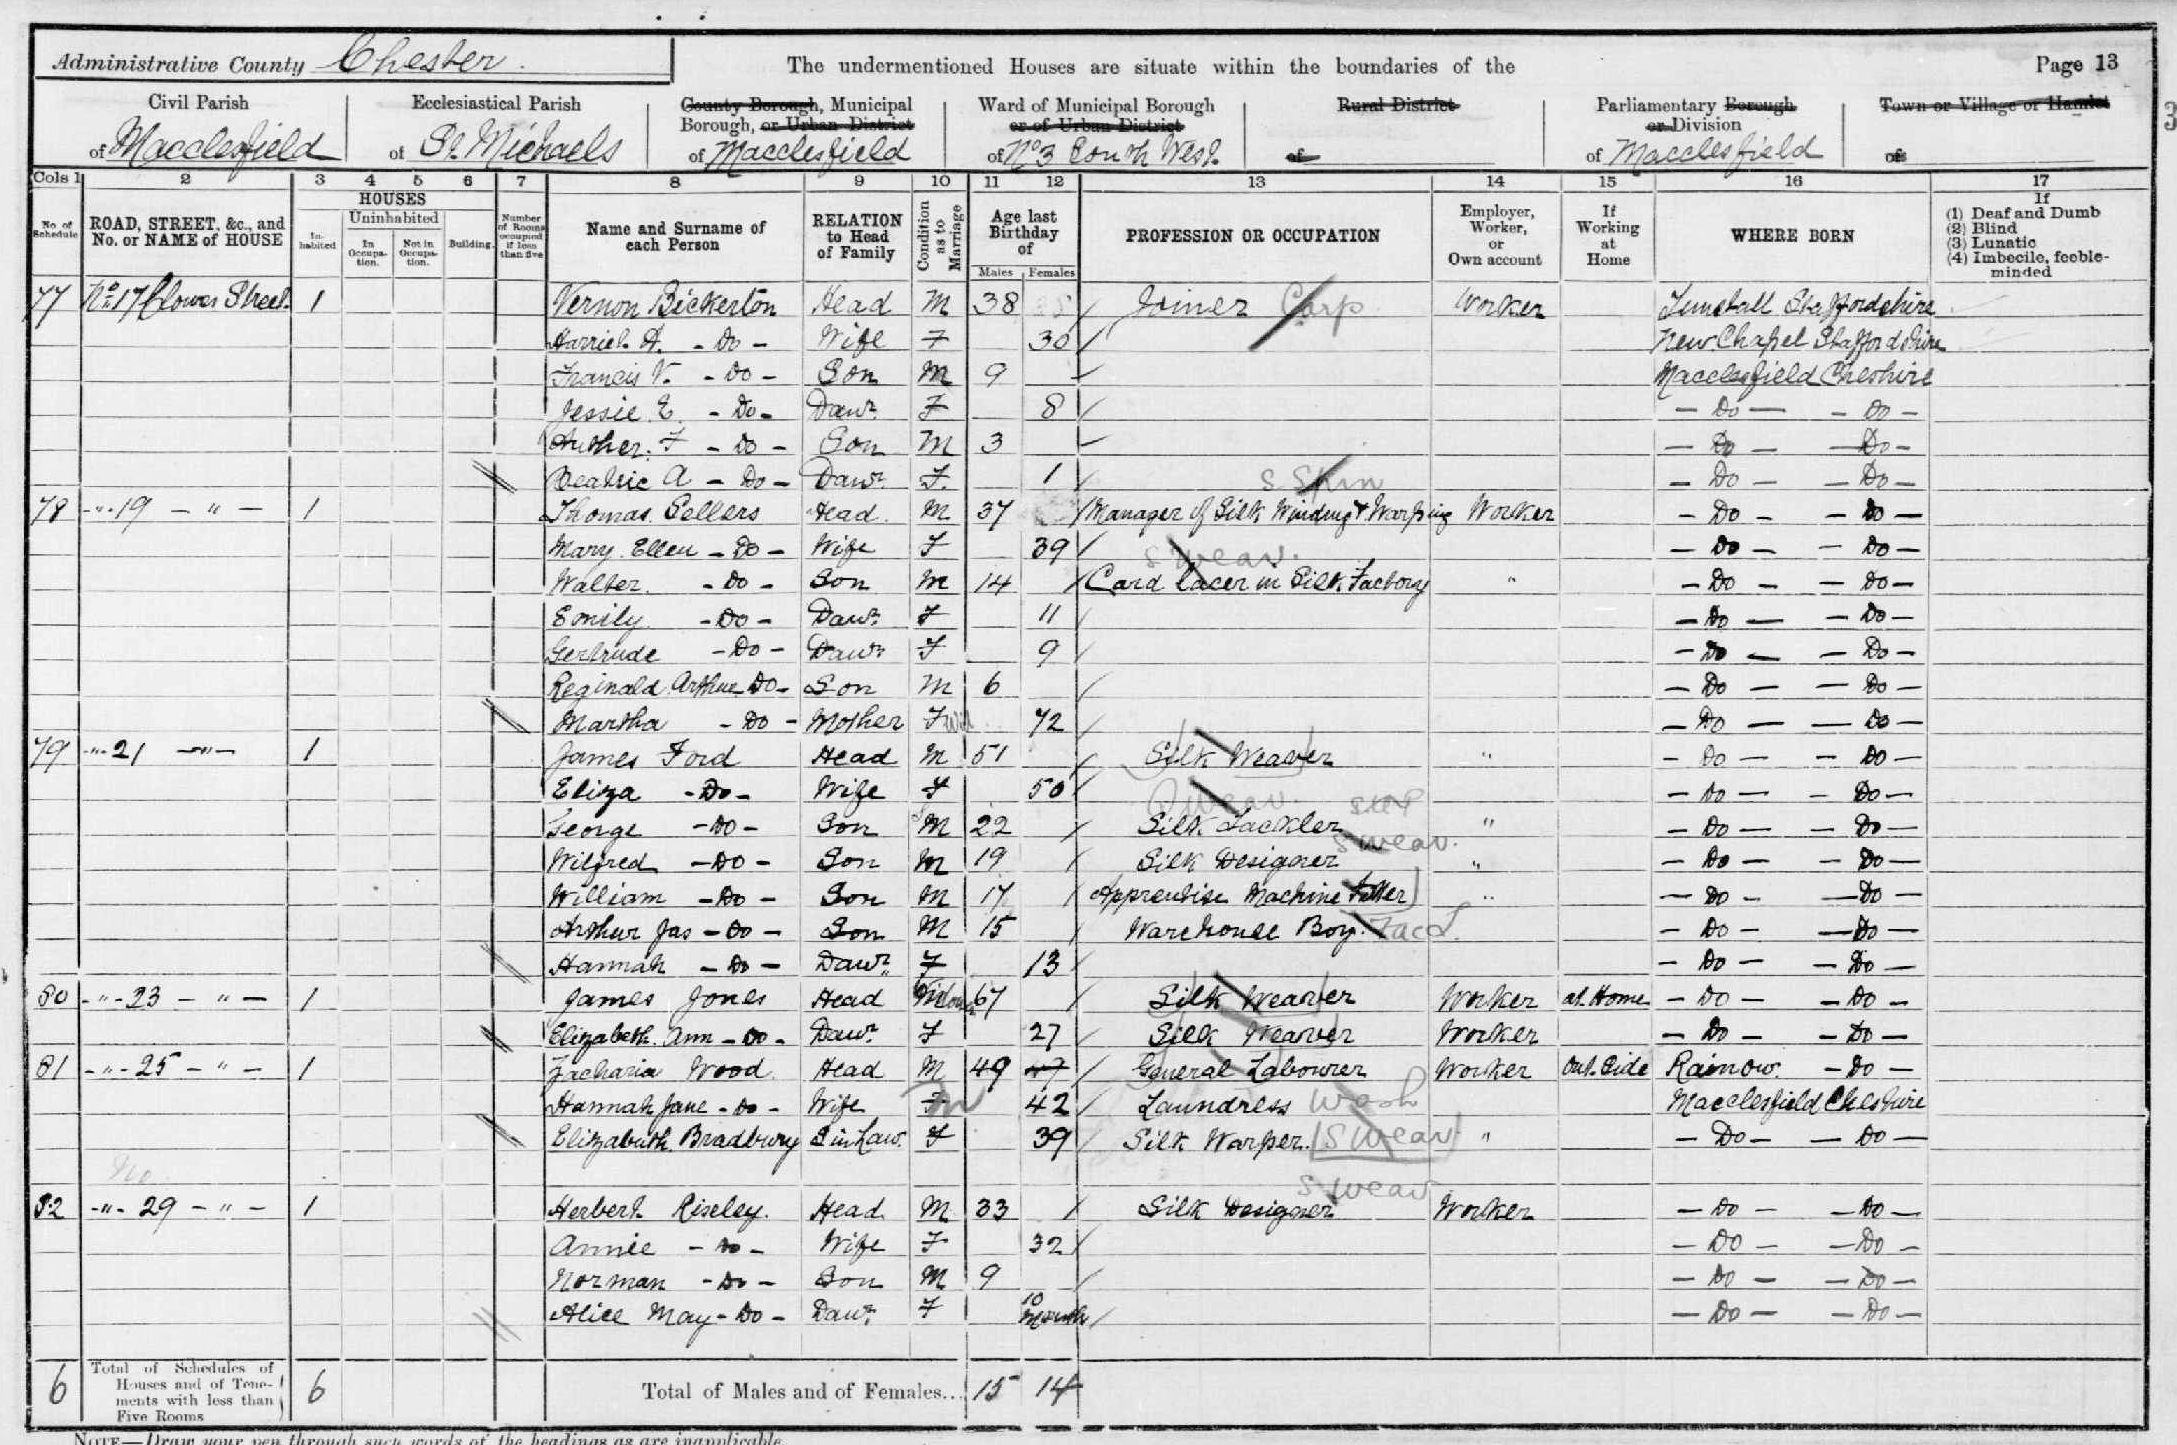 Administrative County Chester.
The undermentioned Houses are situate within the boundaries of the
Page 13
Civil Parish of Macclesfield
Ecclesiastical Parish of St. Michaels
County Borough, Municipal Borough, or Urban District of Macclesfield
Ward of Municipal Borough or of Urban District of No 3 South West.
Rural District of
Parliamentary Borough or Division of Macclesfield
Town or Village or Hamlet of
Cols 1 2 3 4 5 6 7 8 9 10 11 12 13 14 15 16 17
No. of Schedule
ROAD, STREET, &c., and No. or NAME of HOUSE
HOUSES
Inhabited
Uninhabited
In Occupation.
Not in Occupation.
Building.
Number of Rooms occupied if less than five
Name and Surname of each Person
RELATION to Head of Family
Condition as to Marriage
Age last Birthday of
Males Females
PROFESSION OR OCCUPATION
Employer, Worker, or Own account
If Working at Home
WHERE BORN
If
(1) Deaf and Dumb
(2) Blind
(3) Lunatic
(4) Imbecile, feeble-minded
77 No 17 Street 1 Vernon Bickerton Head M 38 Joiner Carp Worker Tunstall Staffordshire
Harriet A. - Do - Wife F 30 New Chapel Staffordshire
Francis V. - Do - Son M 9 Macclesfield Cheshire
Jessie E. - Do - Dawr. F 8 - Do - - Do -
Auther. F - Do - Son M 3 - Do - - Do -
Beatric A - Do - Dawr. F. 1 - Do - - Do -
S Spin
78 -"- 19 - " - 1 Thomas Sellers Head. M 37 Manager of Silk Winding & Warping Worker - Do - - Do -
Mary Ellen - Do - Wife F 39 - Do - - Do -
S Weav.
Walter. - Do - Son M 14 Card Lacer in Silk Factory " - Do - - Do -
Emily - Do - Dawr. F 11 - Do - - Do -
Gertrude - Do - Dawr F 9 - Do - - Do -
Reginald Arthur Do - Son M 6 - Do - - Do -
Martha - Do - Mother F Wid 72 - Do - - Do -
79 -"- 21 -"- 1 James Ford Head M 51 Silk Weaver " - Do - - Do -
Eliza - Do - Wife F 50 - Do - - Do -
George - Do - Son S M 22 Silk Tackler " - Do - - Do -
S Weav.
Wilfred - Do - Son M 19 Silk Designer " - Do - - Do -
William - Do - Son M 17 Apprentise Machine Fitter " - Do - - Do -
Arthur Jas - Do - Son M 15 Warehouse Boy. - Do - - Do -
Hannah - Do - Dawr. F 13 - Do - - Do -
80 -"- 23 - " - 1 James Jones Head Widower 67 Silk Weaver Worker at Home - Do - - Do -
Elizabeth Ann - Do - Dawr. F 27 Silk Weaver Worker - Do - - Do -
81 -"- 25 - " - 1 Zacharia Wood Head M 49 47 General Labourer Worker Out Side Rainow. - Do -
Hannah Jane - Do - Wife F M 42 Laundress Wash Macclesfield Cheshire
Elizabeth Bradbury S in Law. F 39 Silk Warper. S Weav " - Do - - Do -
No
S weav
82 -"- 29 - " - 1 Herbert Riseley. Head M 33 Silk Designer Worker - Do - - Do -
Annie - Do - Wife F 32 - Do - - Do -
Norman - Do - Son M 9 - Do - - Do -
Alice May - Do - Dawr. F 10 Month - Do - - Do -
6 Total of Schedules of Houses and of Tenements with less than Five Rooms 6 Total of Males and of Females... 15 14
NOTE—Draw your pen through such words of the headings as are inapplicable.